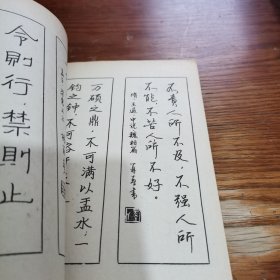 不责人所不及，不强人所
不能，不苦人所不好。
隋 王通 中说 魏相篇
万硕之鼎，不可满以盂水，一
钧之钟，不可容
令则行，禁則止